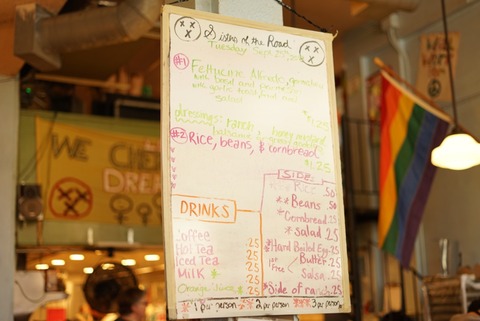 Sisters of the Road
Tuesday Sept 25
#1
Fettucine Alfredo,
with bread and
with garlic bread, and
salad
$1.25
dressings: ranch honey mustard
balsamic
#2 Rice, beans, & cornbread
$1.25
SIDE
Rice .50
** Beans .50
* Cornbread .25
* salad .25
* Hard Boiled Egg .25
1st Free Butter .25
Salsa .25
* Side of ranch .25
DRINKS
Coffee .25
Hot Tea .25
Iced Tea .25
Milk * .25
Orange Juice * .25
* 1 per person ** 2 per person *** 3 per person
WE CHE
DREA